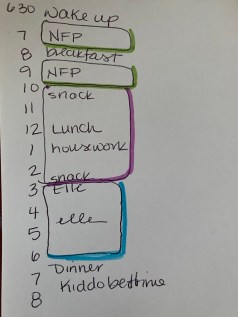 630 Wake up
7 NFP
8 breakfast
9 NFP
10 snack
11
12 Lunch
1 housework
2 snack
3 Elle
4 elle
5
6
7 Dinner
Kiddo bedtime
8